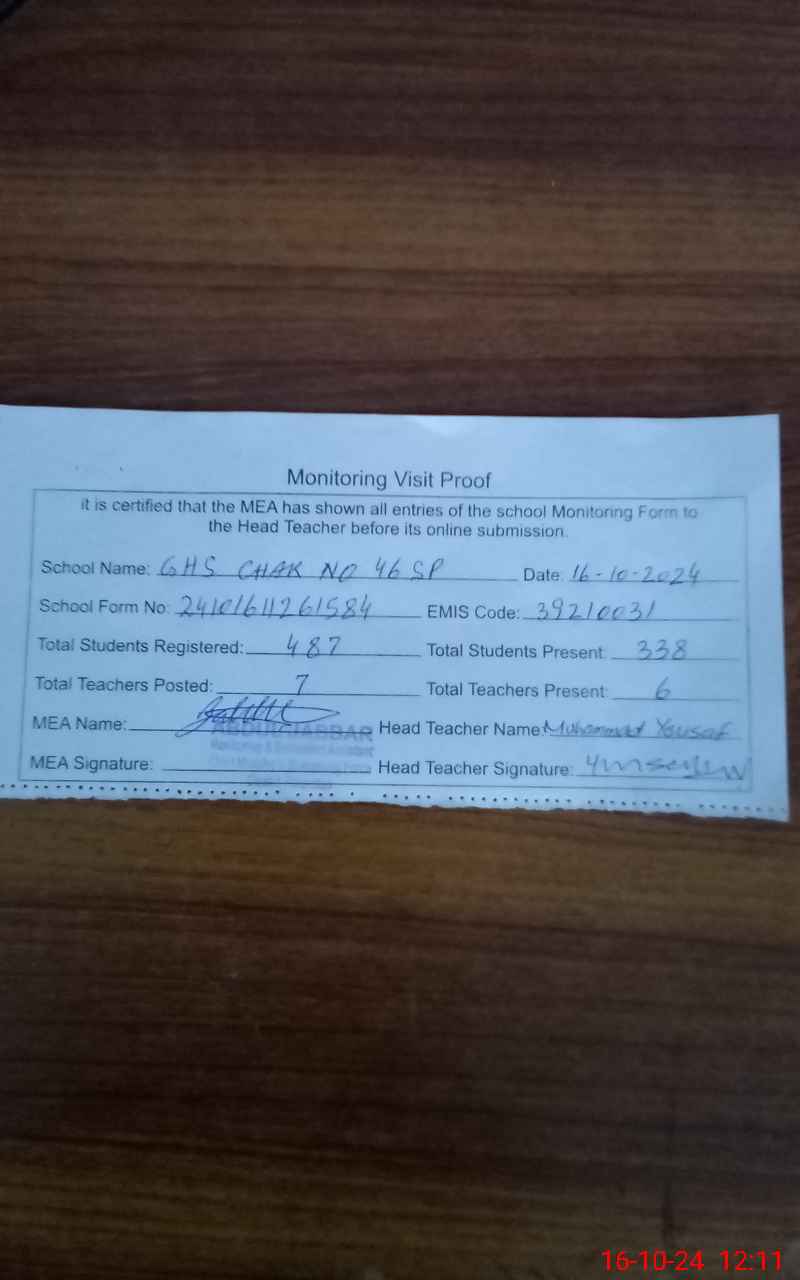 Monitoring Visit Proof
it is certified that the MEA has shown all entries of the school Monitoring Form to
the Head Teacher before its online submission.
School Name: GHS CHAK NO 46 SP Date: 16-10-2024
School Form No: 24101611261584 EMIS Code: 39210031
Total Students Registered: 487 Total Students Present: 338
Total Teachers Posted: 7 Total Teachers Present: 6
MEA Name: ABDULGJABBAR Head Teacher Name: Muhammad Yousaf
Monitoring & Evaluation Assistant
MEA Signature: Head Teacher Signature:
16-10-24 12:11